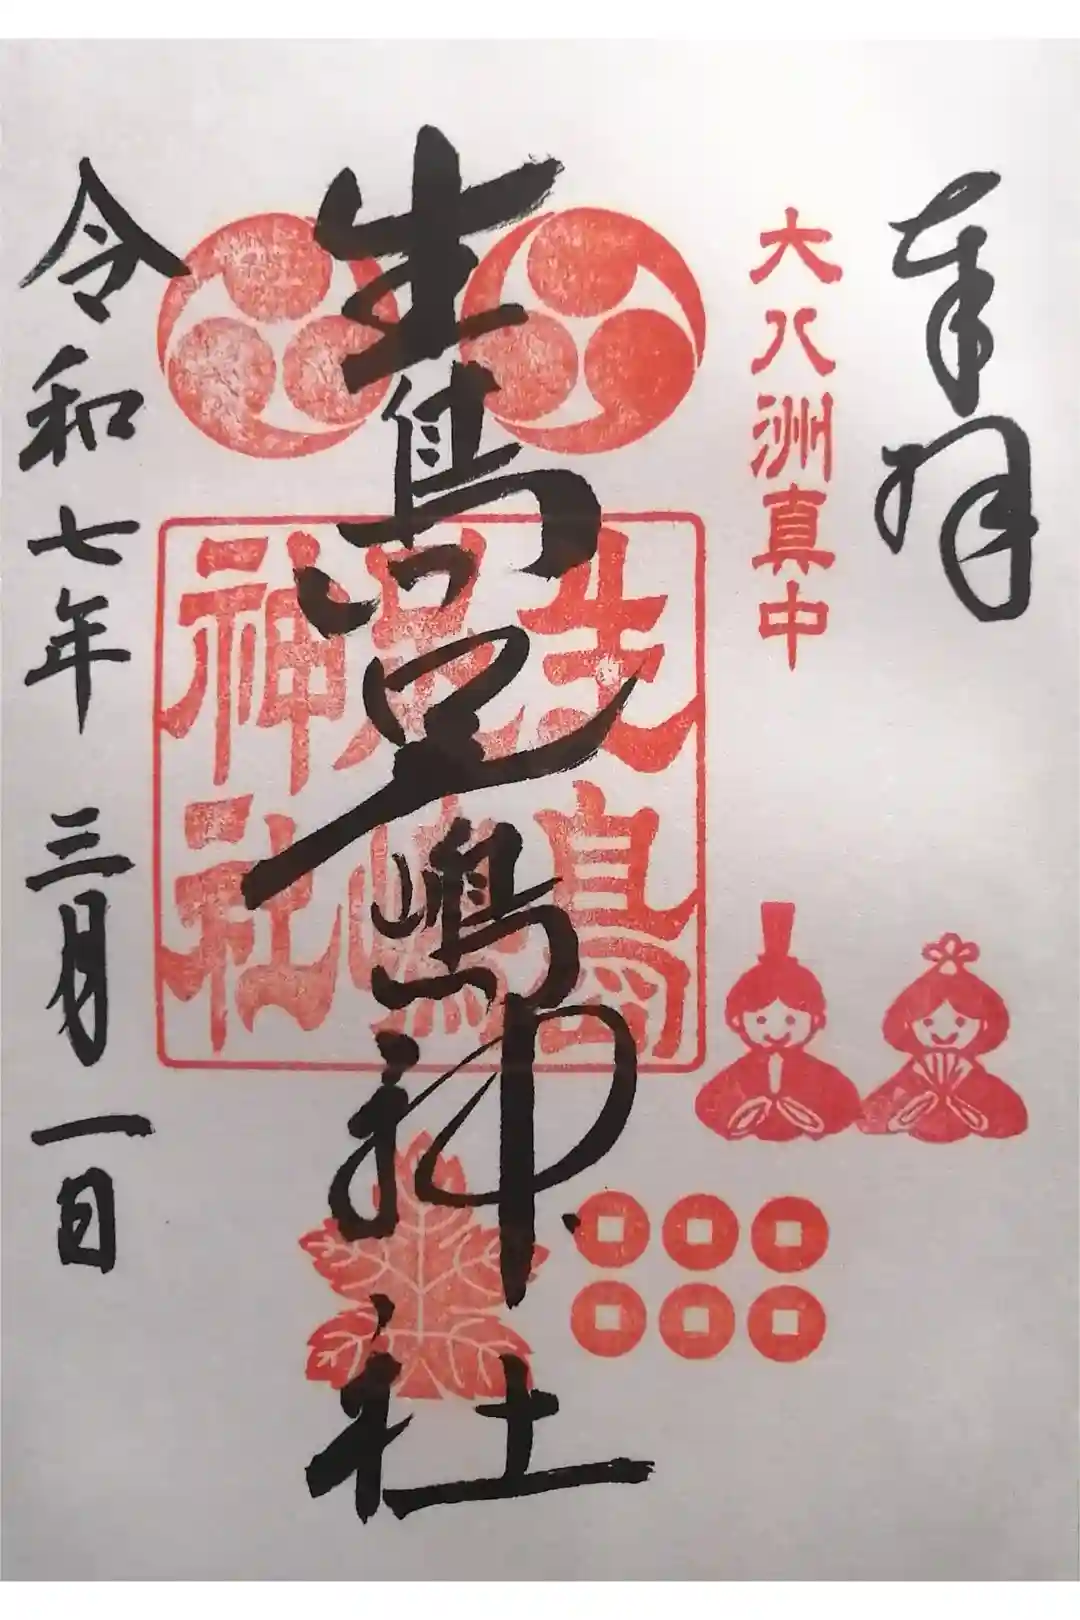 奉拝
大八洲真中
生島足嶋神社
生島
足嶋
神社
令和七年三月一日